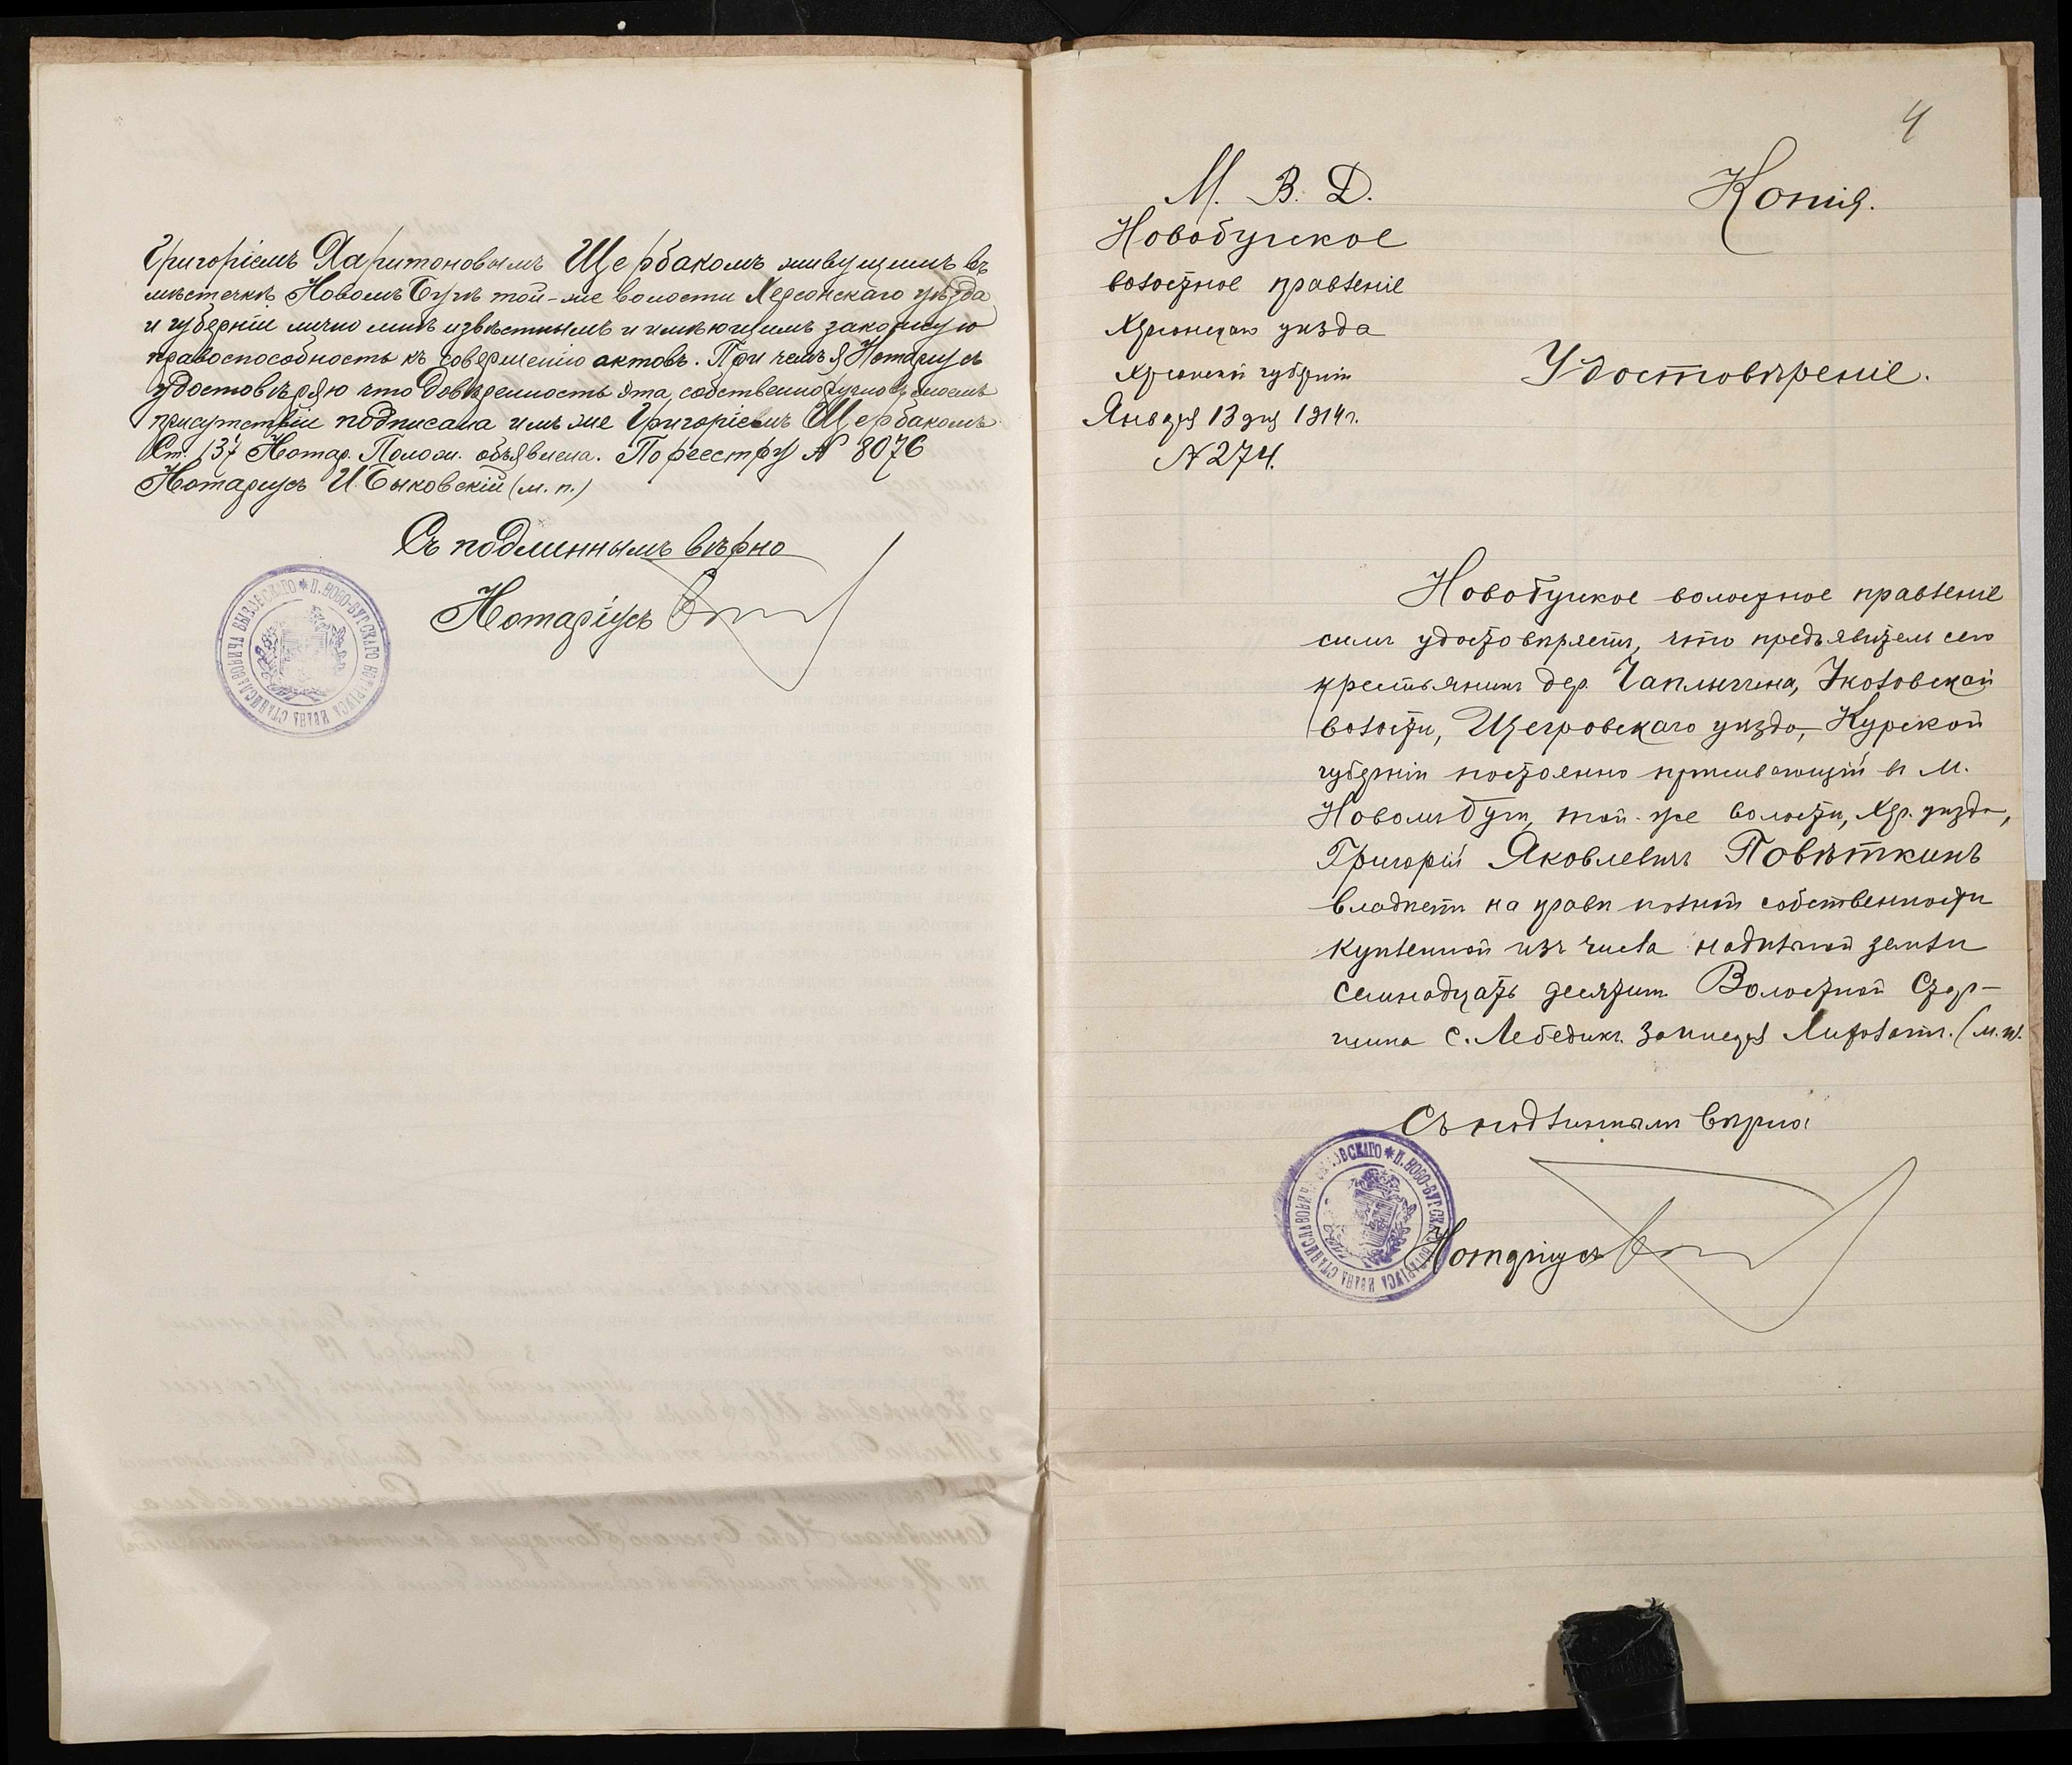 Григоріемъ Харитоновымъ Щербакомъ живущимъ въ
мѣстечкѣ Новомъ Бугѣ той-же волости Херсонскаго уѣзда
и губерніи лично мнѣ извѣстнымъ и имѣющимъ законную
правоспособность къ совершенію актовъ. При чемъ я Нотаріусъ
удостовѣряю что довѣренность эта, собственноручно въ моемъ
присутствіи подписана имъ же Григоріемъ Щербакомъ
Ст. 137 Нотар. Полож. объявлена. По реестру № 8076
Нотаріусъ И. Быковскій (м. п.)
Съ подлиннымъ вѣрно
Нотаріусъ
* П. НОВО-БУГСКАГО НОТАРІУСА ИВАНА СТАНИСЛАВОВИЧА БЫКОВСКАГО
4
М. В. Д.
Новобугское
волостное правленіе
Херсонскаго уѣзда
Херсонской губерніи
Января 13 дня 1914 г.
№ 274.
Копія.
Удостовѣреніе.
Новобугское волостное правленіе
симъ удостовѣряетъ, что предъявитель сего
крестьянинъ дер. Чаплыгина, Уколовской
волости, Щегровскаго уѣзда, Курской
губерніи постоянно проживающій въ М.
Новомъ Бугѣ, той-же волости, Хер. уѣзда,
Григорій Яковлевичъ Повѣткинъ
владѣетъ на правѣ полной собственности
купленной изъ числа надѣльной земли
семнадцать десятинъ Волостной Стар-
шина С. Лебедикъ. За писаря (м. п.).
Съ подлиннымъ вѣрно
* П. НОВО-БУГСКАГО НОТАРІУСА ИВАНА СТАНИСЛАВОВИЧА БЫКОВСКАГО
Нотаріусъ